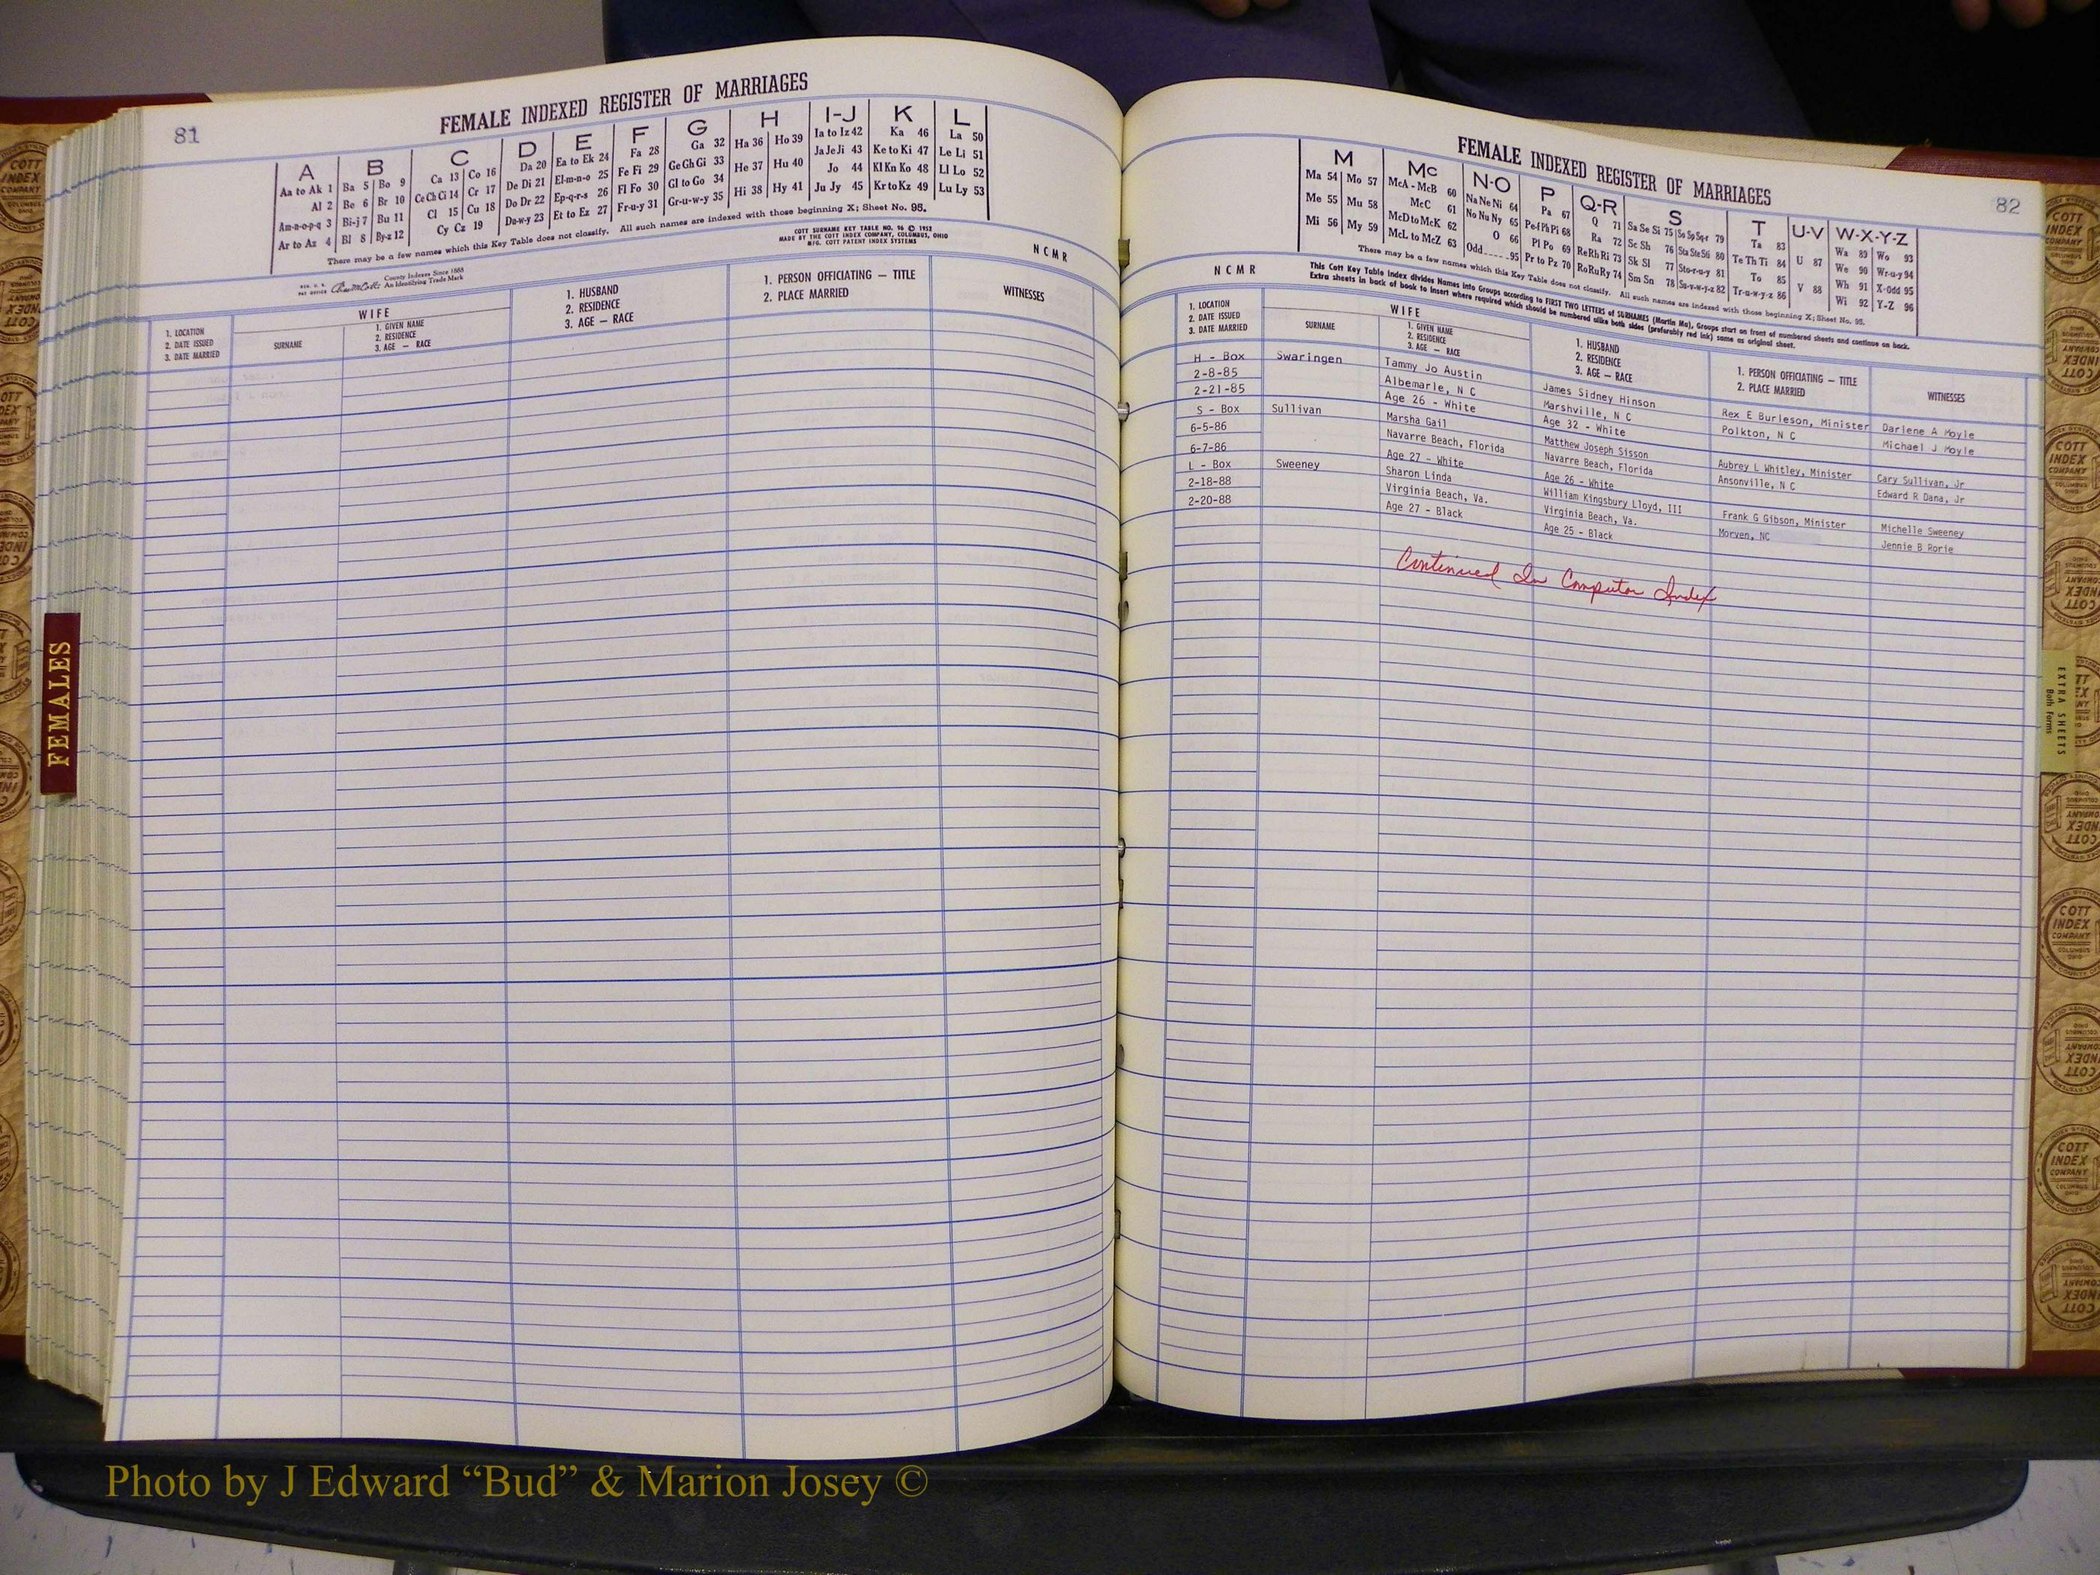 81
FEMALE INDEXED REGISTER OF MARRIAGES
A B C D E F G H I-J K L
Aa to Ak 1 Ba 5 Bo 9 Ca 13 Co 16 Da 20 Ea to Ek 24 Fa 28 Ga 32 Ha 36 Ho 39 Ia to Iz 42 Ka 46 La 50
Al 2 Be 6 Br 10 Ce Ch Ci 14 Cr 17 De Di 21 El-m-n-o 25 Fe Fi 29 Ge Gh Gi 33 He 37 Hu 40 Ja Je Ji 43 Ke to Ki 47 Le Li 51
Am-n-o-p-q 3 Bi-j 7 Bu 11 Cl 15 Cu 18 Do Dr 22 Ep-q-r-s 26 Fl Fo 30 Gl to Go 34 Hi 38 Hy 41 Jo 44 Kl Kn Ko 48 Ll Lo 52
Ar to Az 4 Bl 8 By-z 12 Cy Cz 19 Du-w-y 23 Et to Ez 27 Fr-u-y 31 Gr-u-w-y 35 Ju Jy 45 Kr to Kz 49 Lu Ly 53
There may be a few names which this Key Table does not classify. All such names are indexed with those beginning X; Sheet No. 95.
COTT SURNAME KEY TABLE NO. 96 © 1952
MADE BY THE COTT INDEX COMPANY, COLUMBUS, OHIO
MFG. COTT PATENT INDEX SYSTEMS
County Indexes Since 1888
An Identifying Trade Mark
REG. U. S.
PAT OFFICE
N C M R
1. LOCATION
2. DATE ISSUED
3. DATE MARRIED
WIFE
SURNAME
1. GIVEN NAME
2. RESIDENCE
3. AGE — RACE
1. HUSBAND
2. RESIDENCE
3. AGE — RACE
1. PERSON OFFICIATING — TITLE
2. PLACE MARRIED
WITNESSES
FEMALES
82
FEMALE INDEXED REGISTER OF MARRIAGES
M Mc N-O P Q-R S T U-V W-X-Y-Z
Ma 54 Mo 57 McA - McB 60 Na Ne Ni 64 Pa 67 Q 71 Sa Se Si 75 So Sp Sq-r 79 Ta 83 U 87 Wa 89 Wo 93
Me 55 Mu 58 McC 61 No Nu Ny 65 Pe-f Ph Pi 68 Ra 72 Sc Sh 76 Sta Ste Sti 80 Te Th Ti 84 V 88 We 90 Wr-u-y 94
Mi 56 My 59 McD to McK 62 O 66 Pl Po 69 Re Rh Ri 73 Sk Sl 77 Sto-r-u-y 81 To 85 Wh 91 X-Odd 95
McL to McZ 63 Odd 95 Pr to Pz 70 Ro Ru Ry 74 Sm Sn 78 Su-v-w-y-z 82 Tr-u-w-y-z 86 Wi 92 Y-Z 96
There may be a few names which this Key Table does not classify. All such names are indexed with those beginning X; Sheet No. 95.
This Cott Key Table Index divides Names into Groups according to FIRST TWO LETTERS of SURNAMES (Martin Ma), Groups start on front of numbered sheets and continue on back.
Extra sheets in back of book to insert where required which should be numbered alike both sides (preferably red ink) same as original sheet.
N C M R
1. LOCATION
2. DATE ISSUED
3. DATE MARRIED
WIFE
SURNAME
1. GIVEN NAME
2. RESIDENCE
3. AGE — RACE
1. HUSBAND
2. RESIDENCE
3. AGE — RACE
1. PERSON OFFICIATING — TITLE
2. PLACE MARRIED
WITNESSES
H - Box Swaringen Tammy Jo Austin James Sidney Hinson Rex E Burleson, Minister Darlene A Moyle
2-8-85 Albemarle, N C Marshville, N C Polkton, N C Michael J Moyle
2-21-85 Age 26 - White Age 32 - White
S - Box Sullivan Marsha Gail Matthew Joseph Sisson Aubrey L Whitley, Minister Cary Sullivan, Jr
6-5-86 Navarre Beach, Florida Navarre Beach, Florida Ansonville, N C Edward R Dana, Jr
6-7-86 Age 27 - White Age 26 - White
L - Box Sweeney Sharon Linda William Kingsbury Lloyd, III Frank G Gibson, Minister Michelle Sweeney
2-18-88 Virginia Beach, Va. Virginia Beach, Va. Morven, NC Jennie B Rorie
2-20-88 Age 27 - Black Age 25 - Black
Continued In Computer Index
EXTRA SHEETS
Both Forms
COTT
INDEX
COMPANY
COLUMBUS
OHIO
Photo by J Edward “Bud” & Marion Josey ©